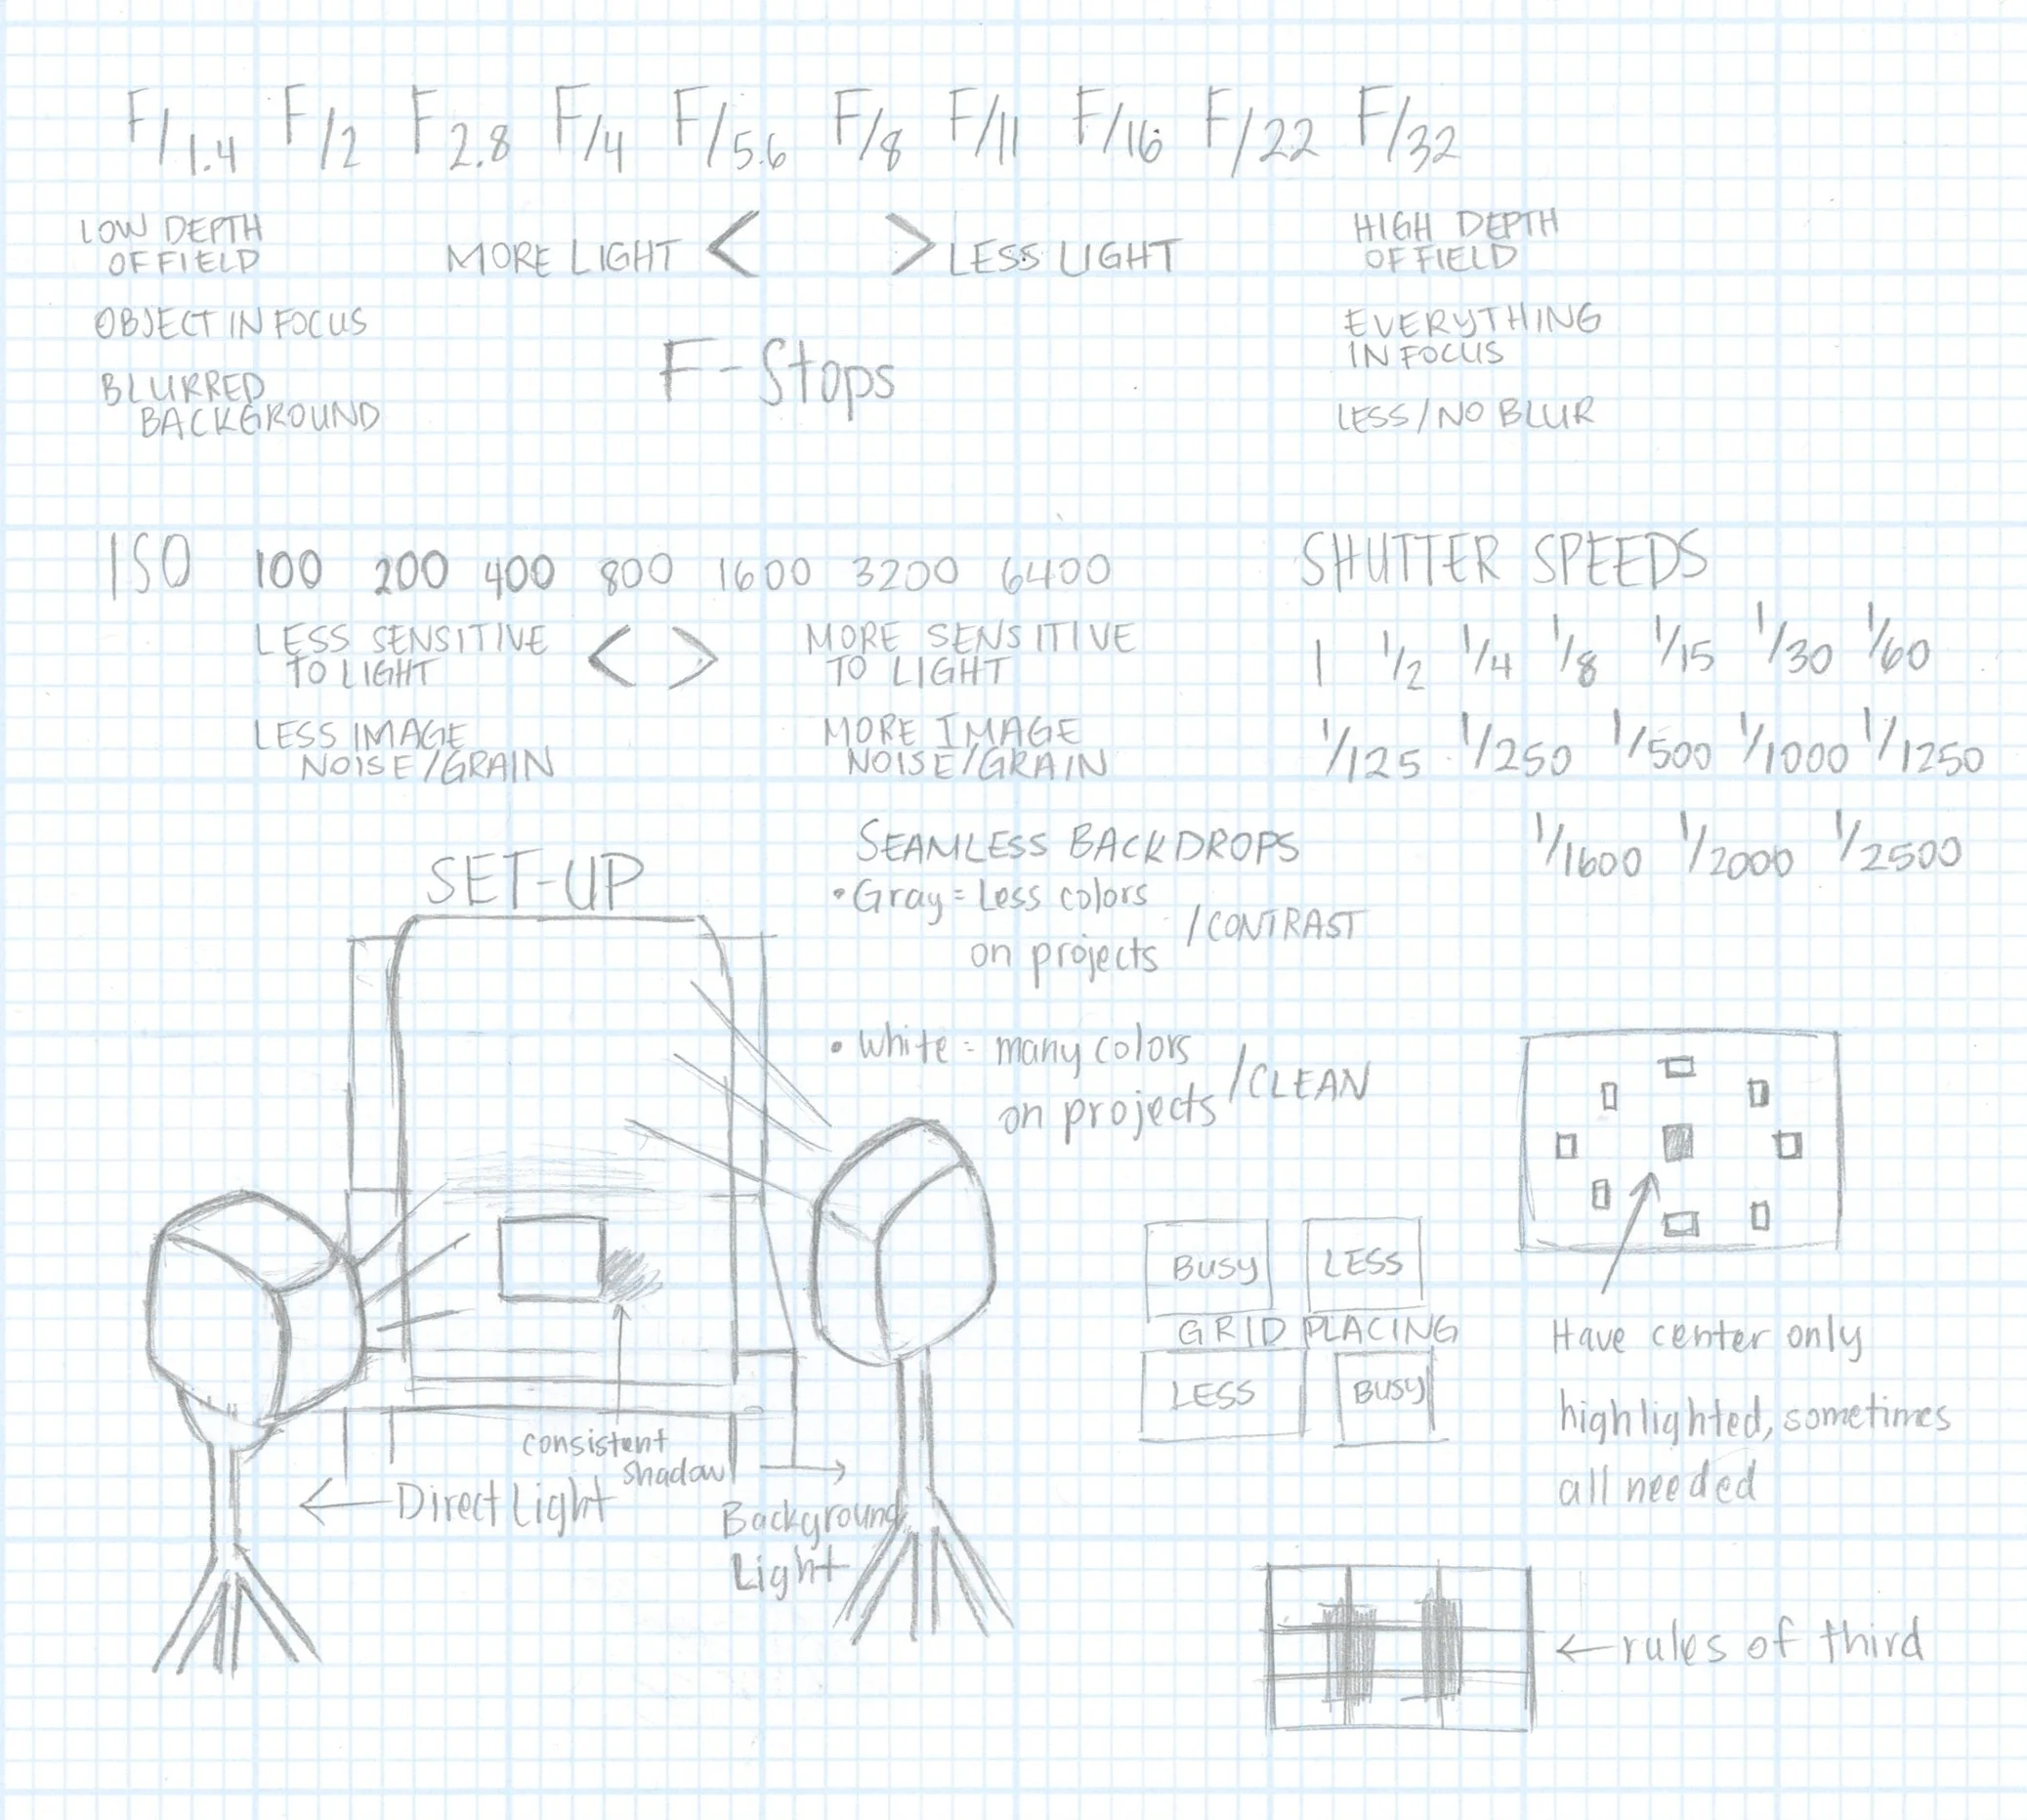 F/1.4 F/2 F2.8 F/4 F/5.6 F/8 F/11 F/16 F/22 F/32
LOW DEPTH
OF FIELD
OBJECT IN FOCUS
BLURRED
BACKGROUND
MORE LIGHT <
> LESS LIGHT
F-Stops
HIGH DEPTH
OF FIELD
EVERYTHING
IN FOCUS
LESS/NO BLUR
ISO 100 200 400 800 1600 3200 6400
LESS SENSITIVE
TO LIGHT
< >
MORE SENSITIVE
TO LIGHT
LESS IMAGE
NOISE/GRAIN
MORE IMAGE
NOISE/GRAIN
SHUTTER SPEEDS
1 1/2 1/4 1/8 1/15 1/30 1/60
1/125 1/250 1/500 1/1000 1/1250
1/1600 1/2000 1/2500
SET-UP
SEAMLESS BACKDROPS
• Gray = Less colors
on projects /CONTRAST
• White = many colors
on projects /CLEAN
consistent
shadow
← Direct Light
Background
Light
BUSY LESS
GRID PLACING
LESS BUSY
Have center only
highlighted, sometimes
all needed
← rules of third